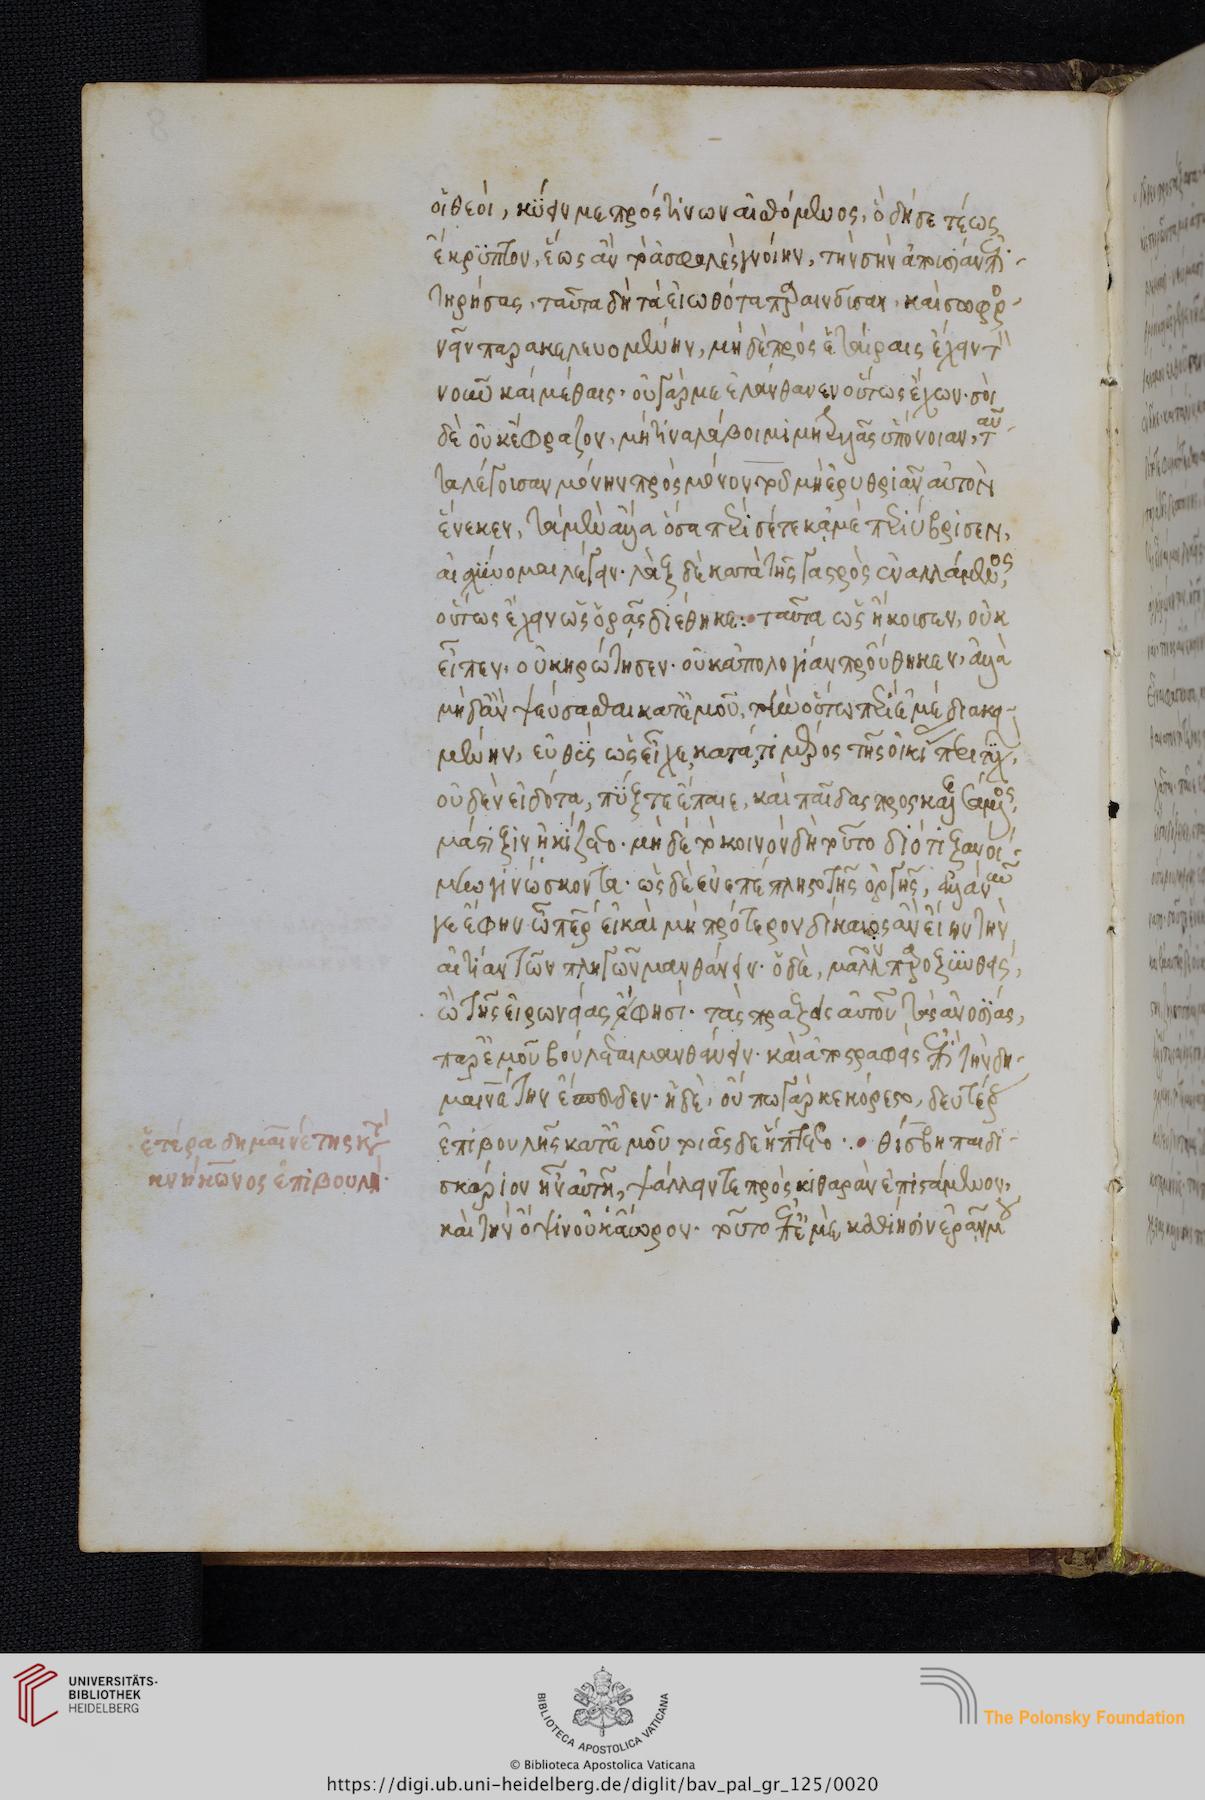 οἱ θεοὶ, κύειν με πρός τινων αἰσθόμενος, ὃ δή σε τέως
ἔκρυπτον, ἕως ἂν τὸ ἀσφαλὲς γνοίην, τὴν σὴν ἀπουσίαν ἐπι-
τηρήσας, ταῦτα δὴ τὰ εἰωθότα παραινοῦσαν, καὶ σωφρο-
νεῖν παρακελευομένην, μηδὲ πρὸς ἑταίραις ἔχειν τὸν
νοῦν καὶ μέθαις· οὐ γάρ με ἐλάνθανεν οὕτως ἔχων· σοὶ
δὲ οὐκ ἔφραζον, μή τινα λάβοιμι μητρυιᾶς ὑπόνοιαν, ταῦ-
τα λέγουσαν μόνην πρὸς μόνον τοῦ μὴ ἐρυθριᾶν αὐτὸν
ἕνεκεν, τὰ μὲν ἄλλα ὅσα περὶ σέ τε κἀμὲ περιύβρισεν,
αἰσχύνομαι λέγειν· λὰξ δὲ κατὰ τῆς γαστρὸς ἐναλλάμενος,
οὕτως ἔχειν ὡς ὁρᾷς διέθηκε:· ταῦτα ὡς ἤκουσεν, οὐκ
εἶπεν, οὐκ ἠρώτησεν· οὐκ ἀπολογίαν προὔθηκεν, ἀλλὰ
μὴ δ' ἂν ψεύσασθαι κατ' ἐμοῦ, τὴν οὕτω περὶ ἐμέ διακει-
μένην, εὐθὺς ὡς εἶχε, κατά τι μέρος τῆς οἰκίας περιτυχὼν,
οὐδὲν εἰδότα, πύξ τε ἔπαιε, καὶ παῖδας προσκαλεσάμενος,
μάστιξιν ᾐκίζετο· μηδὲ τὸ κοινὸν δὴ τοῦτο διότι ξαινοί-
μην γινώσκοντα· ὡς δὲ ἐνεπέπληστο τῆς ὀργῆς, ἀλλὰ νῦν
γε ἔφην ὦ πάτερ εἰ καὶ μὴ πρότερον δίκαιος ἂν εἴην τὴν
αἰτίαν τῶν πληγῶν μανθάνειν· ὁ δὲ, μᾶλλον παροξυνθεὶς,
ὢ τῆς εἰρωνείας ἔφησι· τὰς πράξεις αὐτοῦ τὰς ἀνοσίας,
παρ' ἐμοῦ βούλεται μανθάνειν· καὶ ἀποστραφεὶς ἐπὶ τὴν δη-
μαινέτην ἔσπευδεν· ἡ δὲ, οὔπω γὰρ κεκόρεστο, δευτέρας
ἐπιβουλῆς κατ' ἐμοῦ τοιᾶσδε ἥπτετο:· θίσβη παιδι-
σκάριον ἦν αὐτῇ, ψάλλειν τε πρὸς κιθάραν ἐπιστάμενον,
καὶ τὴν ὄψιν οὐκ ἄωρον· τοῦτο ἐπ' ἐμὲ καθίησιν ἐρᾶν μου
ἑτέρα δημαινέτης κατὰ
κνήμωνος ἐπιβουλή·
UNIVERSITÄTS-
BIBLIOTHEK
HEIDELBERG
BIBLIOTECA APOSTOLICA VATICANA
The Polonsky Foundation
© Biblioteca Apostolica Vaticana
https://digi.ub.uni-heidelberg.de/diglit/bav_pal_gr_125/0020